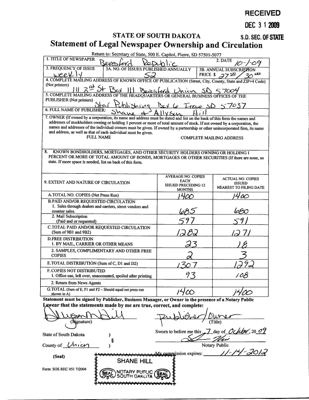 RECEIVED
DEC 31 2009
S.D. SEC. OF STATE
STATE OF SOUTH DAKOTA
Statement of Legal Newspaper Ownership and Circulation
Return to: Secretary of State, 500 E. Capitol, Pierre, SD 57501-5077
1. TITLE OF NEWSPAPER
Beresford Republic
2. DATE
10-1-09
3. FREQUENCY OF ISSUE
weekly
3A. NO. OF ISSUES PUBLISHED ANNUALLY
52
3B. ANNUAL SUBSCRIPTION
PRICE $
4. COMPLETE MAILING ADDRESS OF KNOWN OFFICE OF PUBLICATION (Street, City, County, State and ZIP+4 Code)
(Not printers)
111 S. 3rd St Box 111 Beresford Union SD 57004
5. COMPLETE MAILING ADDRESS OF THE HEADQUARTERS OR GENERAL BUSINESS OFFICES OF THE
PUBLISHER (Not printer)
Star Publishing Box 6 Irene SD 57037
6. FULL NAME OF PUBLISHER:
Shane & Allyson Hill
7. OWNER (If owned by a corporation, its name and address must be stated and list on the back of this form the names and
addresses of stockholders owning or holding 1 percent or more of total amount of stock. If not owned by a corporation, the
names and addresses of the individual owners must be given. If owned by a partnership or other unincorporated firm, its name
and address, as well as that of each individual must be given.
FULL NAME
COMPLETE MAILING ADDRESS
8. KNOWN BONDHOLDERS, MORTGAGES, AND OTHER SECURITY HOLDERS OWNING OR HOLDING 1
PERCENT OR MORE OF TOTAL AMOUNT OF BONDS, MORTGAGES OR OTHER SECURITIES (If there are none, so
state. If more space is needed, list on back of this form.
9. EXTENT AND NATURE OF CIRCULATION
AVERAGE NO. COPIES
EACH
ISSUE PRECEDING 12
MONTHS
ACTUAL NO. COPIES
ISSUED
NEAREST TO FILING DATE
A. TOTAL NO. COPIES (Net Press Run)
1400
1400
B. PAID AND/OR REQUESTED CIRCULATION
1. Sales through dealers and carriers, street vendors and
counter sales.
685
680
2. Mail Subscription
(Paid and or requested)
597
591
C. TOTAL PAID AND/OR REQUESTED CIRCULATION
(Sum of 9B1 and 9B2)
1282
1271
D. FREE DISTRIBUTION
1. BY MAIL, CARRIER OR OTHER MEANS
23
18
2. SAMPLES, COMPLIMENTARY AND OTHER FREE
COPIES
2
3
E. TOTAL DISTRIBUTION (Sum of C, D1 and D2)
1307
1292
F. COPIES NOT DISTRIBUTED
1. Office use, left over, unaccounted, spoiled after printing
93
108
2. Return from News Agents
G. TOTAL (Sum of E, F1 and F2 - Should equal net press run
shown in A)
1400
1400
Statement must be signed by Publisher, Business Manager, or Owner in the presence of a Notary Public
I swear that the statements made by me are true, correct, and complete:
publisher/owner
(Signature)
(Title)
State of South Dakota )
Sworn to before me this 7 day of October, 20 09
County of Union )
Notary Public
(Seal)
My commission expires: 11-14-2012
SHANE HILL
SEAL NOTARY PUBLIC SOUTH DAKOTA SEAL
Form: SOS REC 051 7/2004